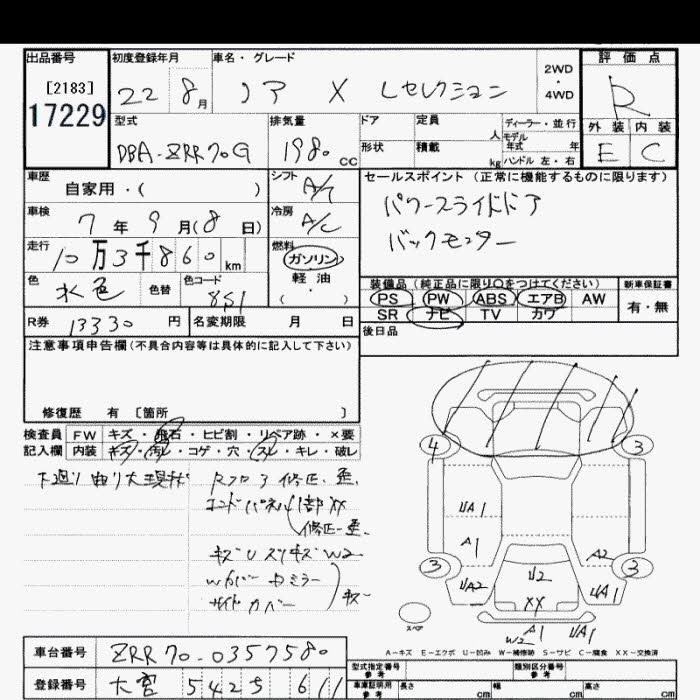 出品番号 初度登録年月 車名・グレード 2WD・4WD 評価点
[2183]
17229
22 8月 ノア X Lセレクション R
型式 排気量 ドア 定員 人 ディーラー・並行 外装 内装
モデル年式 年
DBA-ZRR70G 1980 cc 形状 積載 kg ハンドル 左・右 E C
車歴 自家用・( ) シフト A/T セールスポイント(正常に機能するものに限ります)
車検 7年9月(8日) 冷房 A/C パワースライドドア
走行 10万3千860km 燃料 ガソリン 軽油 ( ・ ) バックモニター
色 水色 色替 色コード 8S1 装備品(純正品に限り○をつけてください) 新車保証書
PS PW ABS エアB AW 有・無
R券 13330円 名変期限 月 日 SR ナビ TV カワ
後日品
注意事項申告欄(不具合内容等は具体的に記入して下さい)
修復歴 有 〔箇所 〕
検査員 FW キズ・飛石・ヒビ割・リペア跡・×要
記入欄 内装 キズ・汚レ・コゲ・穴・スレ・キレ・破レ
修正、歪、
修正歪、
W2
サイドカバー
4 3
UA1
A1 A2
3 3
UA2 U2 UA1
XX
スペア
W2 A1 UA1
A-キズ E-エクボ U-凹み W-補修跡 S-サビ C-腐食 XX-交換済
車台番号 ZRR70-0357580
型式指定番号 参考 類別区分番号 参考
登録番号 大宮 542 5 611
車庫証明用 参考 長さ cm 幅 cm 高さ cm